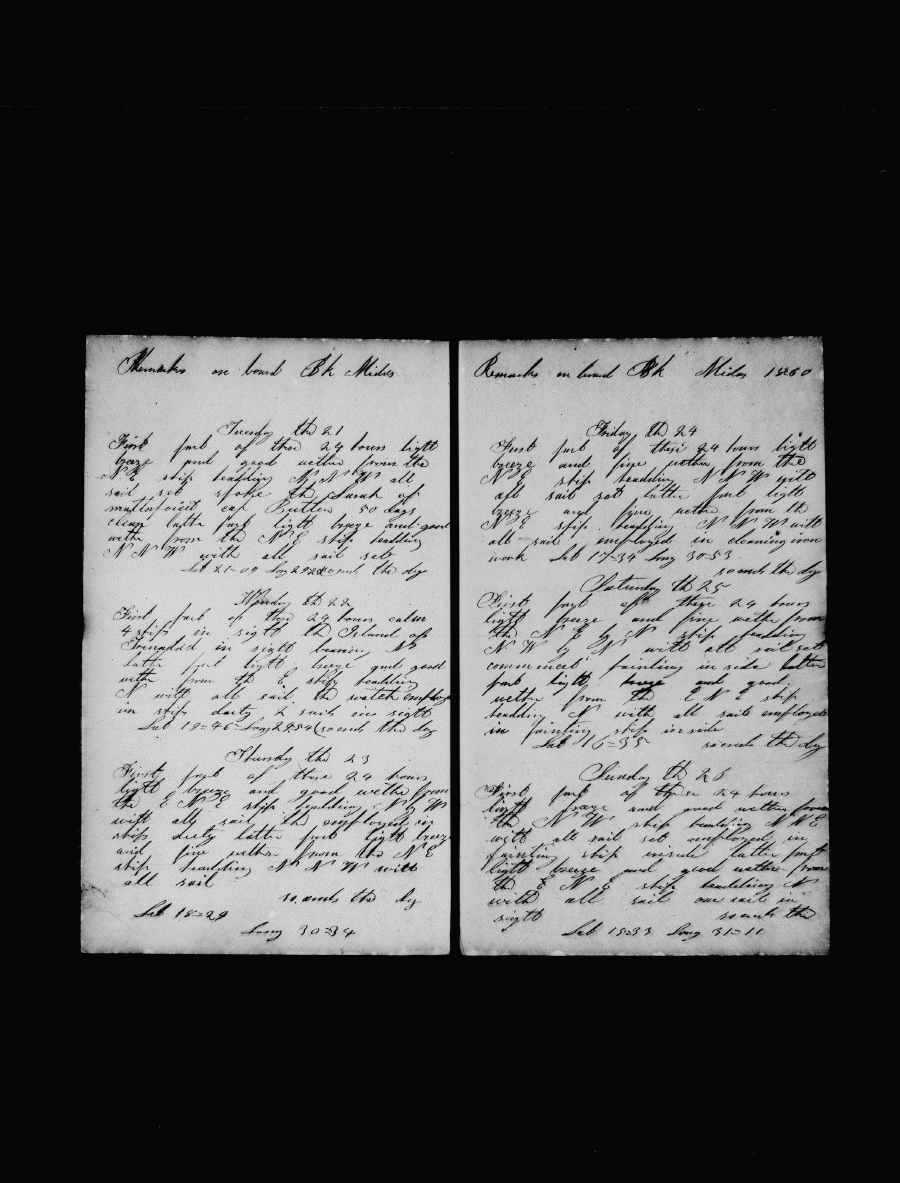 Remarks on board Bk Midas
Tuesday th 21
First part of these 24 hours light
breze and good wether from the
N E ship headding N N W all
sail set spoke the Sarah of
mattapoiset cap Butler 50 days
clean latter part light breze and good
wether from the N E ship headding
N N W with all sail set
Lat 21=09 Long so ends the day
th 22
First part of these 24 hours calm
4 ships in sight the Island of
Trinadad in sight bearing
latter part light breze and good
wether from the E ship headding
N with all sail the watch employed
in ships duty 2 sail in sight
Lat 19=46 Long 29 54 so ends the day
Thursday the 23
First part of these 24 hours
light breze and good wether from
the E N E ship headding N by W
with all sail the employed in
ships duty latter part light breze
and fine wether from the N E
ship headding N N W with
all sail
so ends the day
Lat 18=29
Long 30=34
Remarks on board Bk Midas 1860
Friday th 24
First part of these 24 hours light
breze and fine wether from the
N E ship headding N N W with
all sail set latter part light
breeze and fine wether from th
N E ship headding N N W with
all sail employed in cleaning iron
work Lat 17=34 Long 30=53
so ends the day
Saturday th 25
First part of these 24 hours
light breeze and fine wether from
the N E by N ship headding
N W by N with all sail set
commenced painting in side latter
part light breze and good
wether from the E N E ship
headding N with all sail employed
in painting ship inside
Lat 16=35 so ends the day
Sunday th 26
First part of these 24 hours
light breze and good wether from
the N W ship headding N N E
with all sail set employed in
painting ship inside latter part
light breeze and good wether from
the E N E ship headding N
with all sail one sail in
sight so ends the
Lat 15=33 Long 31=11